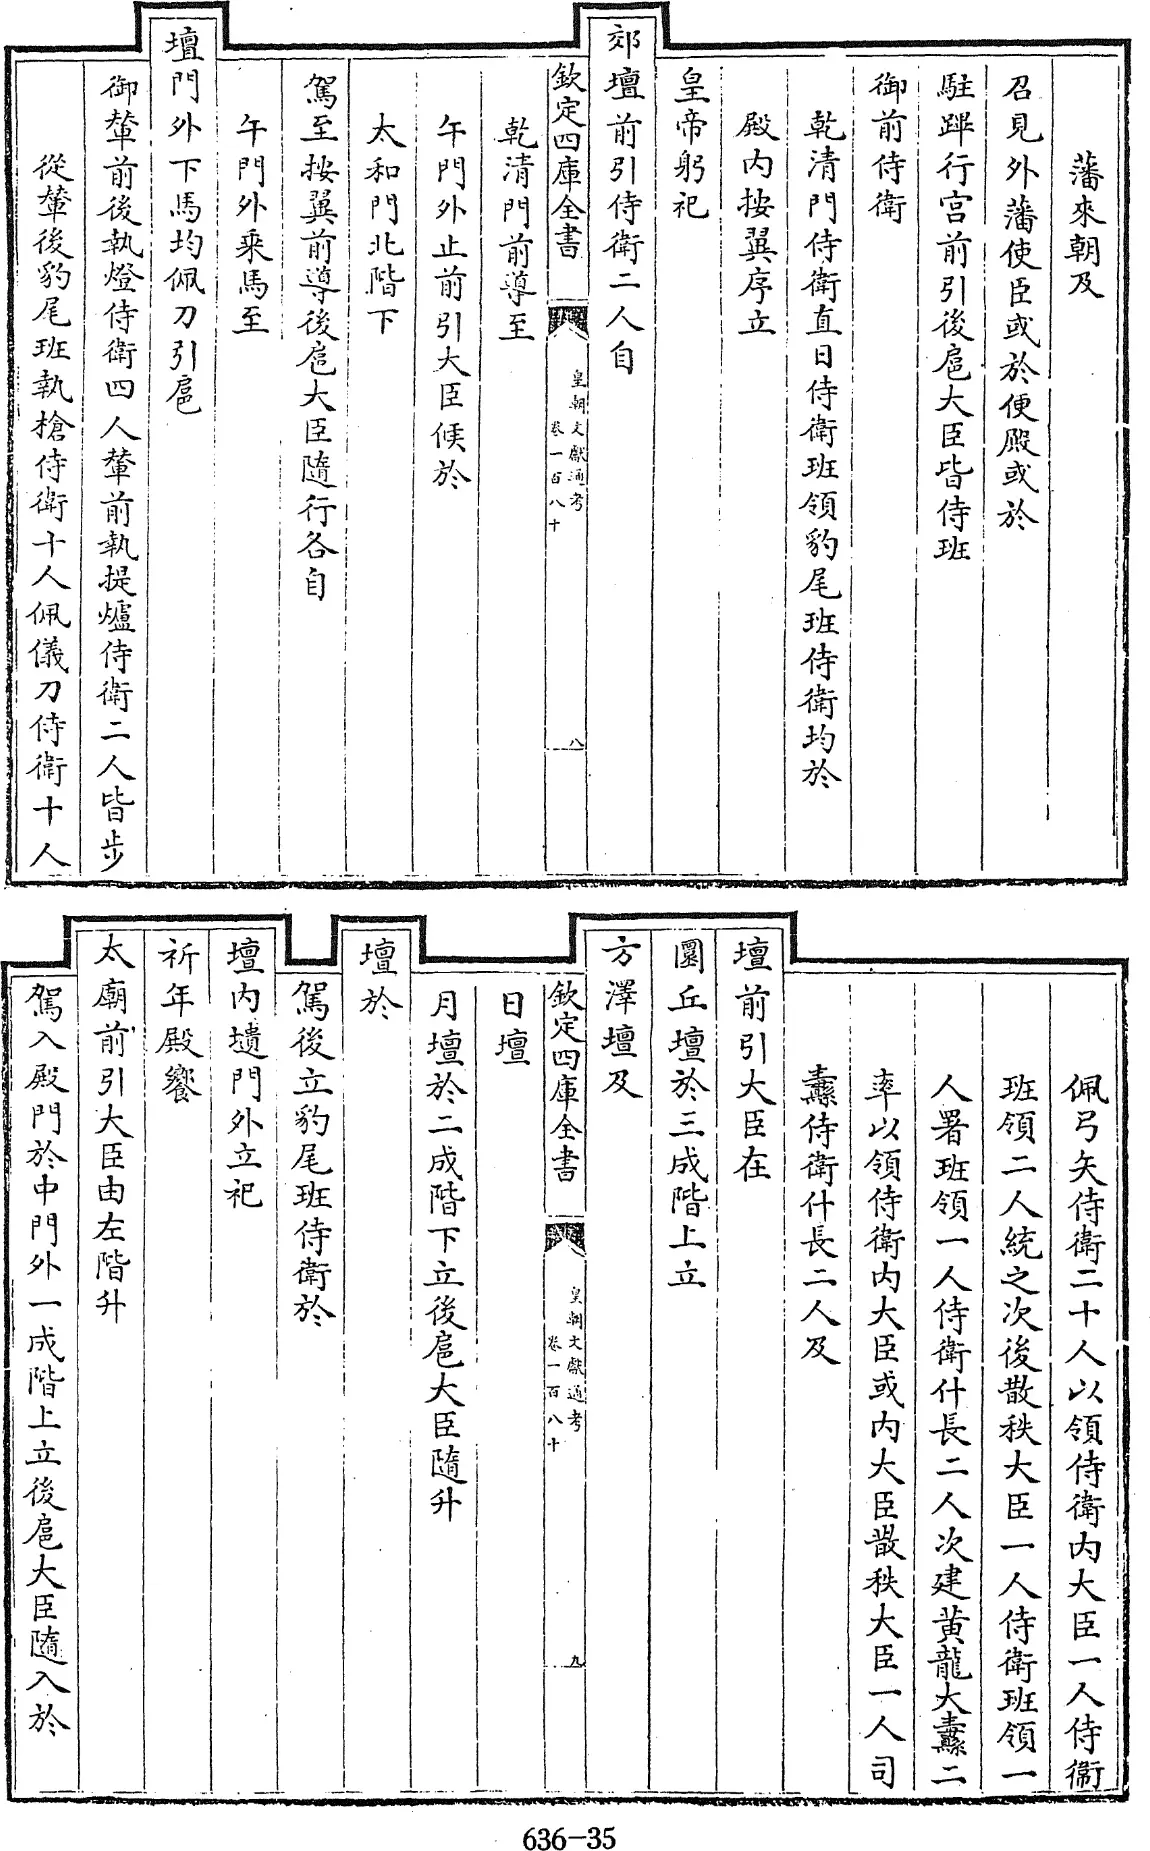 藩來朝及
召見外藩使臣或於便殿或於
駐蹕行宫前引後扈大臣皆侍班
御前侍衛
乾清門侍衛直日侍衛班領豹尾班侍衛均於
殿内按翼序立
皇帝躬祀
郊壇前引侍衛二人自
欽定四庫全書
皇朝文獻通考
卷一百八十
八
乾清門前導至
午門外止前引大臣候於
太和門北階下
駕至按翼前導後扈大臣隨行各自
午門外乘馬至
壇門外下馬均佩刀引扈
御輦前後執燈侍衛四人輦前執提爐侍衛二人皆步
從輦後豹尾班執槍侍衛十人佩儀刀侍衛十人
佩弓矢侍衛二十人以領侍衛内大臣一人侍衛
班領二人統之次後散秩大臣一人侍衛班領一
人署班領一人侍衛什長二人次建黄龍大纛二
率以領侍衛内大臣或内大臣散秩大臣一人司
纛侍衛什長二人及
壇前引大臣在
圜丘壇於三成階上立
方澤壇及
欽定四庫全書
皇朝文獻通考
卷一百八十
九
日壇
月壇於二成階下立後扈大臣隨升
壇於
駕後立豹尾班侍衛於
壇内壝門外立祀
祈年殿饗
太廟前引大臣由左階升
駕入殿門於中門外一成階上立後扈大臣隨入於
636-35